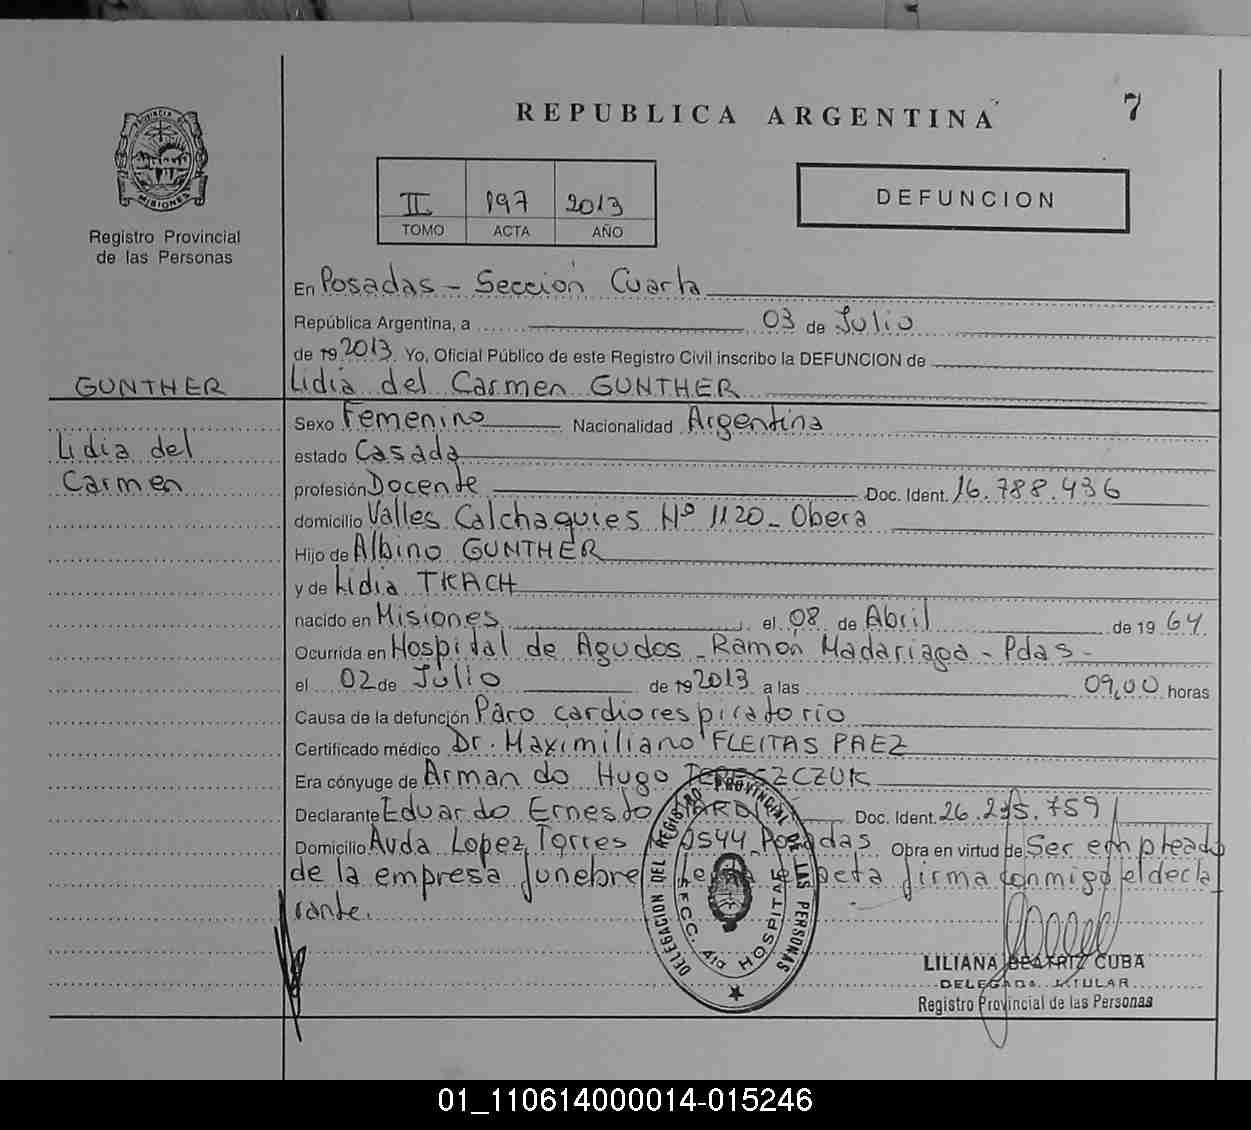 7
REPUBLICA ARGENTINA
PROVINCIA DE MISIONES
Registro Provincial
de las Personas
II 197 2013
TOMO ACTA AÑO
DEFUNCION
En Posadas - Sección Cuarta
República Argentina, a 03 de Julio
de 19 2013. Yo, Oficial Público de este Registro Civil inscribo la DEFUNCION de
GUNTHER
Lidia del Carmen GUNTHER
Lidia del
Carmen
Sexo Femenino Nacionalidad Argentina
estado Casada
profesión Docente Doc. Ident. 16.788.436
domicilio Valles Calchaquies Nº 1120 - Obera
Hijo de Albino GUNTHER
y de Lidia TKACH
nacido en Misiones el 08 de Abril de 19 64
Ocurrida en Hospital de Agudos - Ramón Madariaga - Pdas -
el 02 de Julio de 19 2013 a las 09,00 horas
Causa de la defunción Paro cardiorespiratorio
Certificado médico Dr. Maximiliano FLEITAS PAEZ
Era cónyuge de Armando Hugo TERESZCZUK
Declarante Eduardo Ernesto Doc. Ident.
Domicilio Avda Lopez Torres 0544 Posadas Obra en virtud de Ser empleado
de la empresa funebre firma conmigo el decla
rante.
DELEGACION DEL REGISTRO PROVINCIAL DE LAS PERSONAS
SECC. 4ta HOSPITAL
LILIANA BEATRIZ CUBA
DELEGADA TITULAR
Registro Provincial de las Personas
01_110614000014-015246